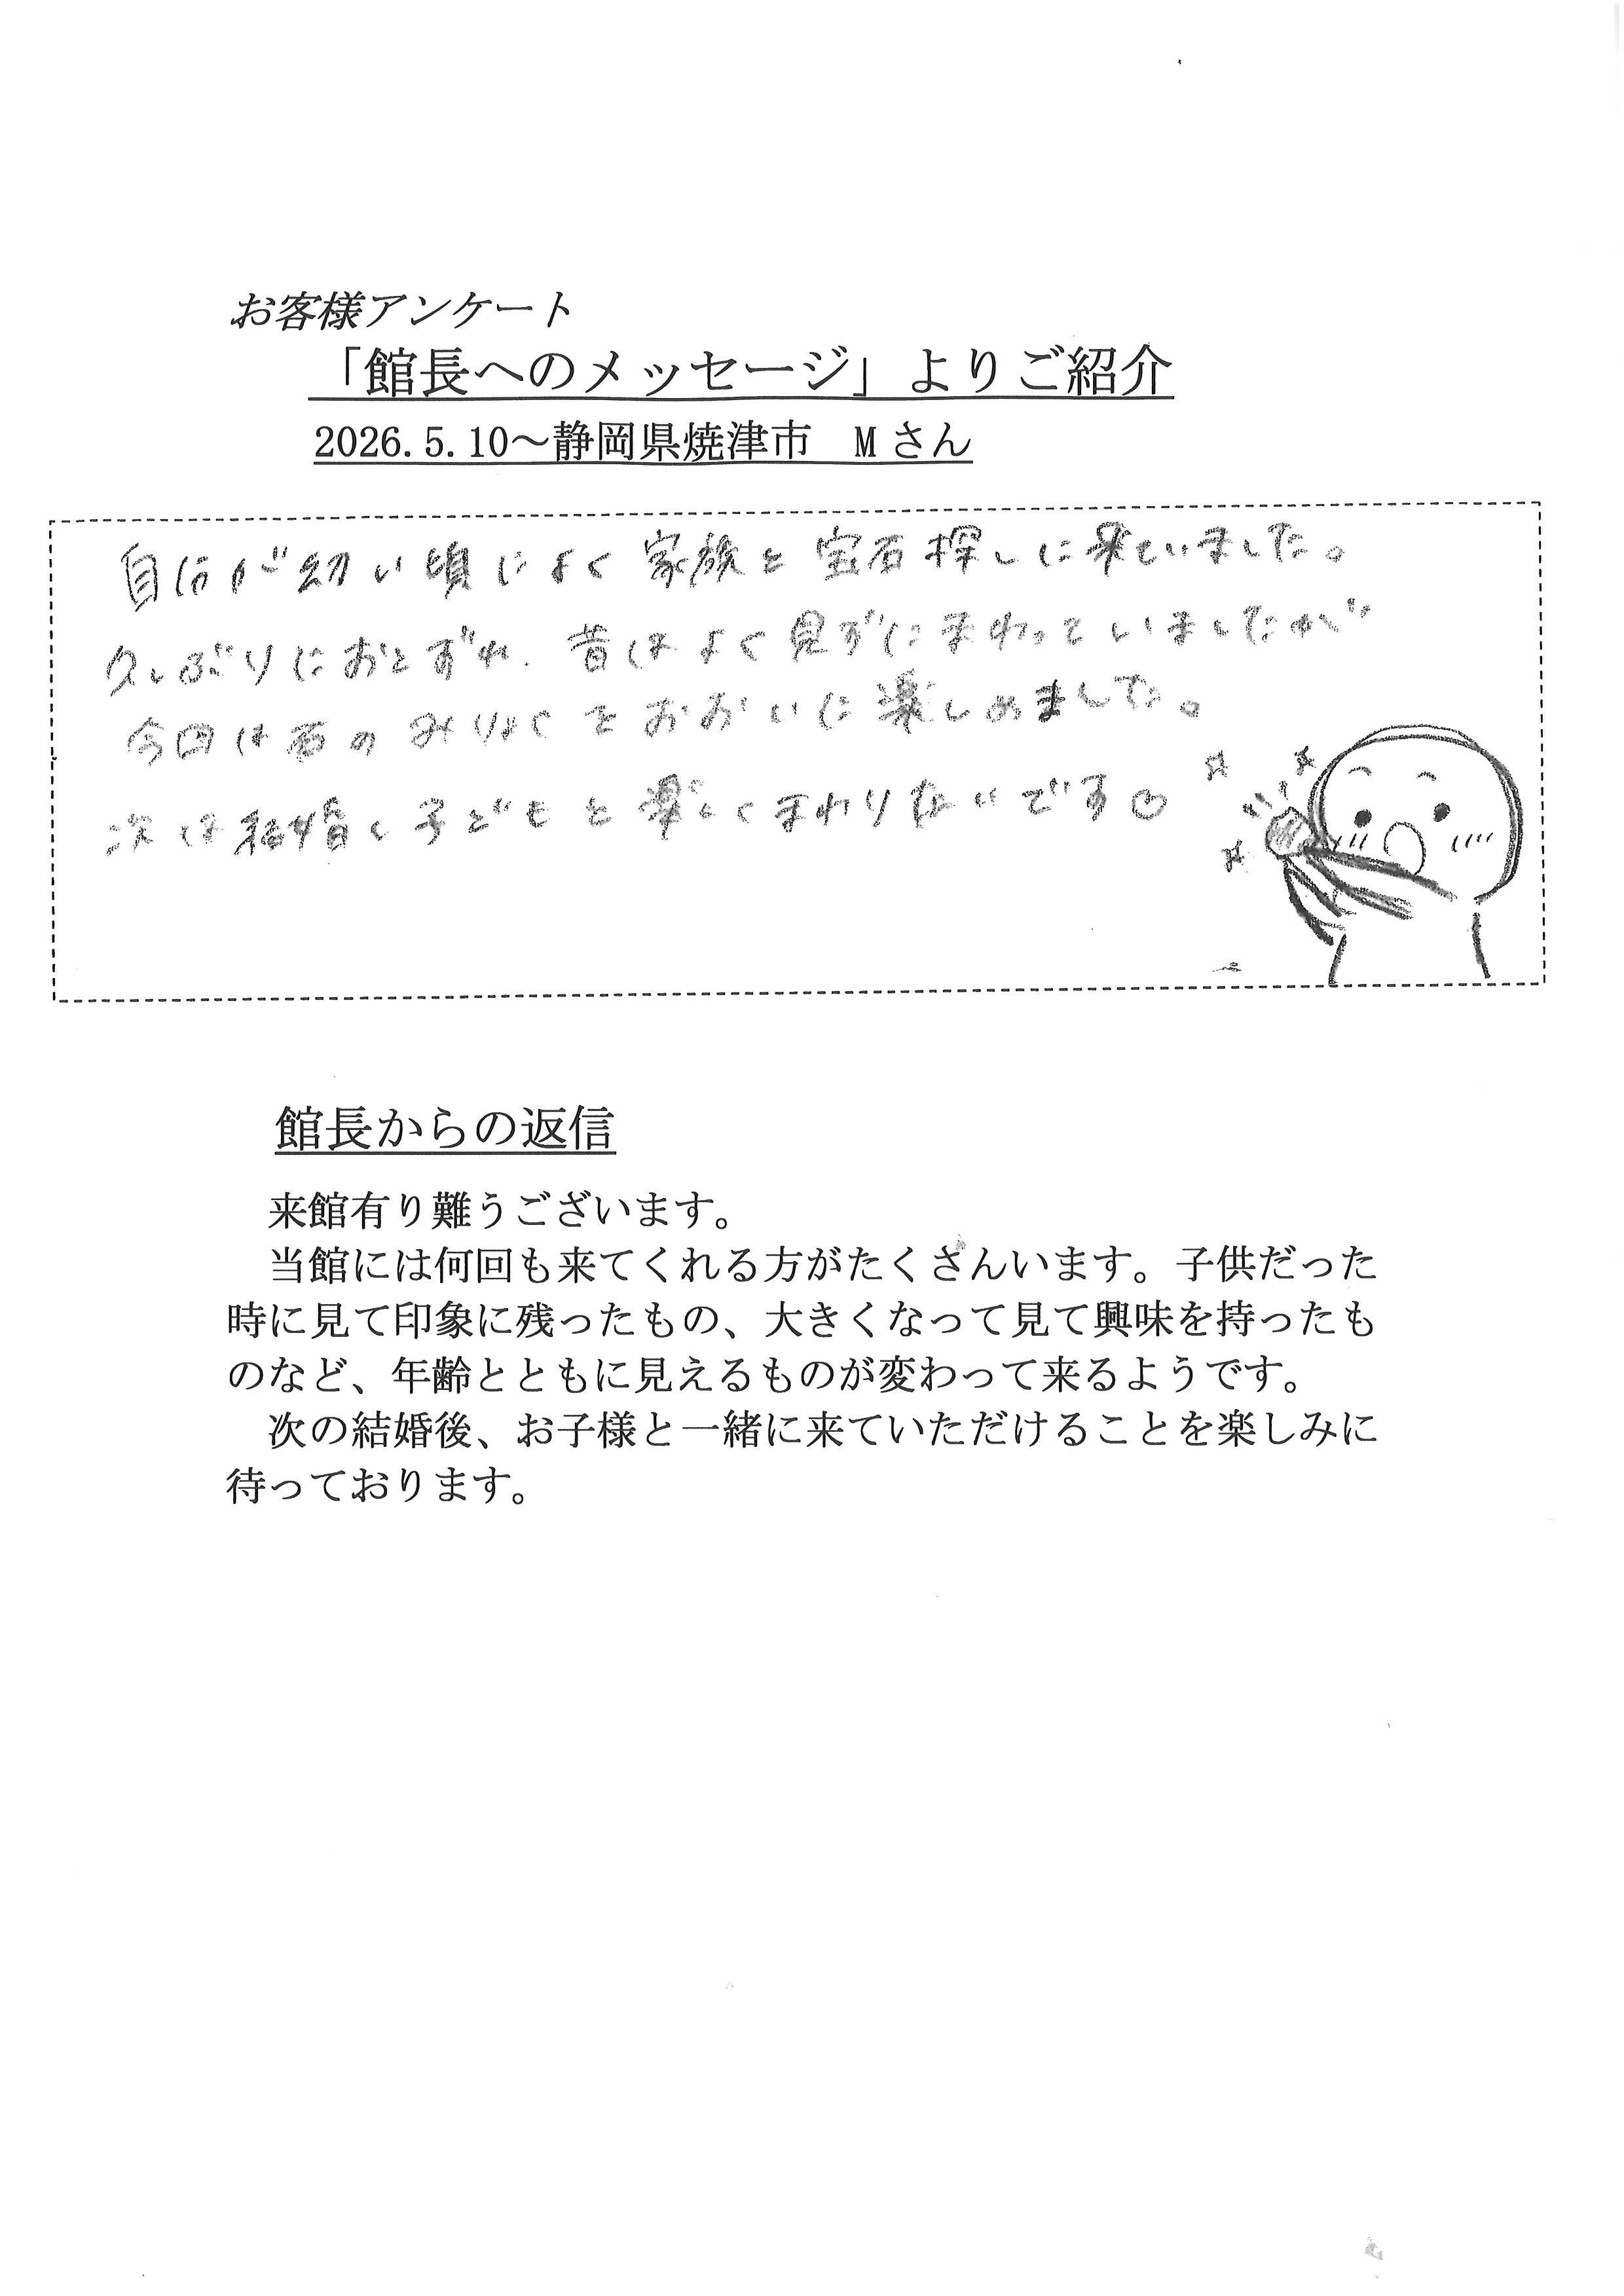 お客様アンケート
「館長へのメッセージ」よりご紹介
2026.5.10～静岡県焼津市　Mさん
自分が幼い頃によく家族と宝石探しに来ていました。
久しぶりにおとずれ、昔はよく見ずにまわっていましたが
今回は石のみりょくをおおいに楽しめました。
次は結婚し子どもと楽しくまわりたいです♡
館長からの返信
来館有り難うございます。
当館には何回も来てくれる方がたくさんいます。子供だった
時に見て印象に残ったもの、大きくなって見て興味を持ったも
のなど、年齢とともに見えるものが変わって来るようです。
次の結婚後、お子様と一緒に来ていただけることを楽しみに
待っております。